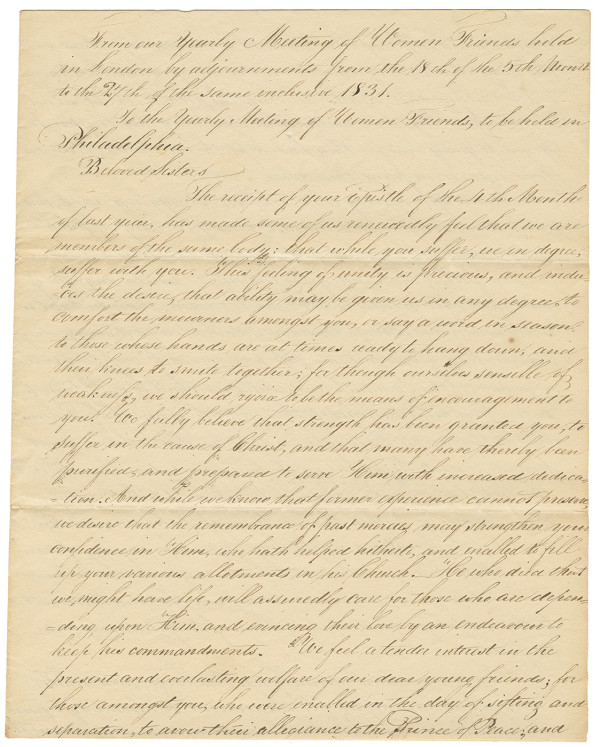 From our Yearly Meeting of Women Friends held
in London by adjournments from the 18th of the 5th Month
to the 27th of the same inclusive 1831.
To the Yearly Meeting of Women Friends, to be held in
Philadelphia.
Beloved Sisters
The receipt of your Epistle of the 4th Month
of last year, has made some of us renewedly feel that we are
members of the same body: that while you suffer, we in degree,
suffer with you. This feeling of unity is precious, and indu-
-ces the desire, that ability may be given us in any degree, to
comfort the mourners amongst you, or say a word in season
to those whose hands are at times ready to hang down, and
their knees to smite together; for though ourselves sensible of
weakness, we should rejoice to be the means of encouragement to
you. We fully believe that strength has been granted you, to
suffer in the cause of Christ, and that many have thereby been
purified, and prepared to serve Him with increased dedica-
-tion. And while we know that former experience cannot preserve,
we desire that the remembrance of past mercies may strengthen your
confidence in Him, who hath helped hitherto, and enabled to fill
up your various allotments in his Church. He who died that
we might have life, will assuredly care for those who are depen-
-ding upon Him, and evincing their love by an endeavour to
keep his commandments. We feel a tender interest in the
present and everlasting welfare of our dear young friends; for
those amongst you, who were enabled in the day of sifting and
separation, to avow their allegiance to the Prince of Peace; and